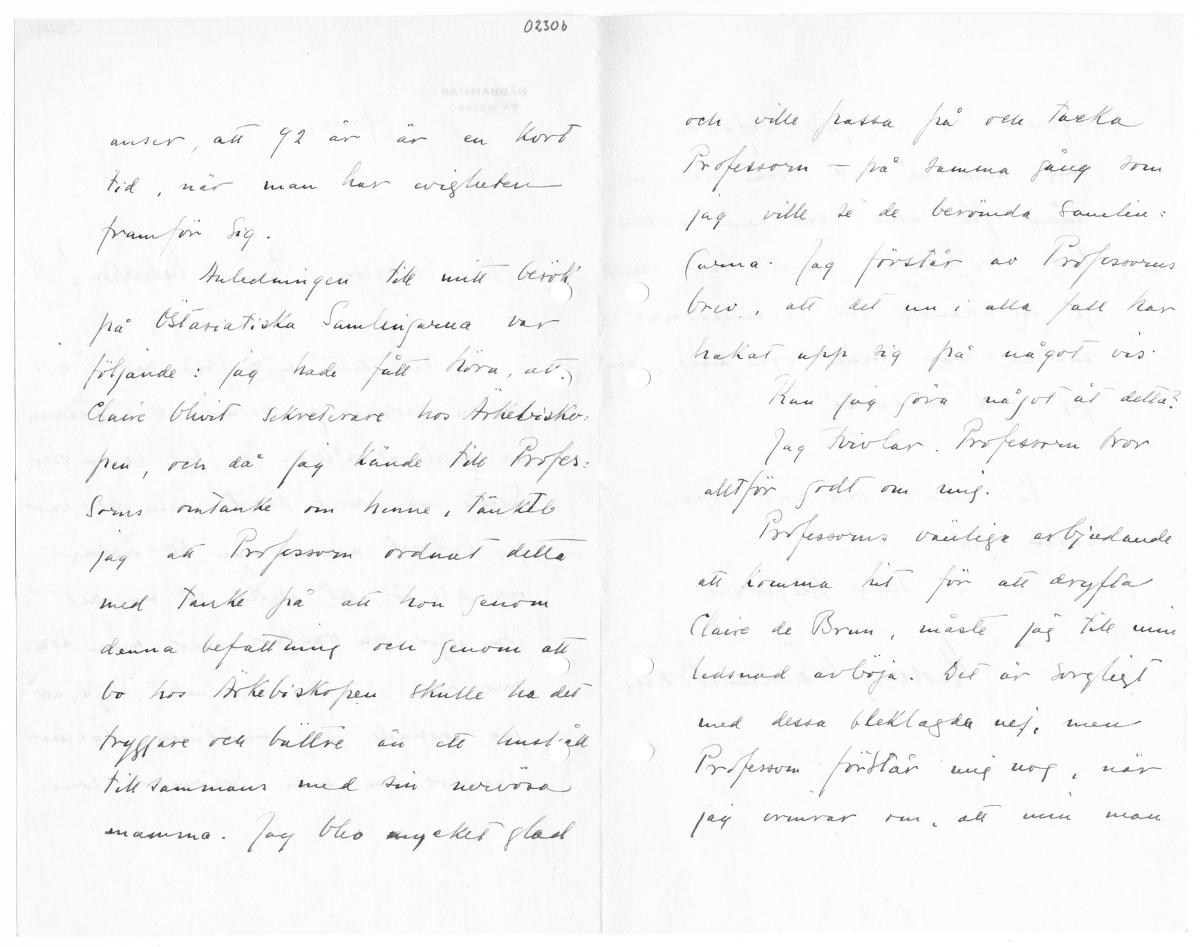 02306
anser, att 92 år är en kort
tid, när man har evigheten
framför sig.
Anledningen till mitt besök
på Östasiatiska Samlingarna var
följande: jag hade fått höra, att
Claire blivit sekreterare hos Ärkebisko=
pen, och då jag kände till Profes=
sorns omtanke om henne, tänkte
jag att Professorn ordnat detta
med tanke på att hon genom
denna befattning och genom att
bo hos Ärkebiskopen skulle ha det
tryggare och bättre än ett hushåll
tillsammans med sin nervösa
mamma. Jag blev mycket glad
och ville passa på och tacka
Professorn – på samma gång som
jag ville se de berömda Samlin=
garna. Jag förstår av Professorns
brev, att det nu i alla fall har
hakat upp sig på något vis.
Kan jag göra något åt detta?
Jag tvivlar. Professorn tror
alltför godt om mig.
Professorns vänliga erbjudande
att komma hit för att dryfta
Claire de Brun, måste jag till min
ledsnad avböja. Det är sorgligt
med dessa bleklagda nej, men
Professorn förstår mig nog, när
jag erinrar om, att min man